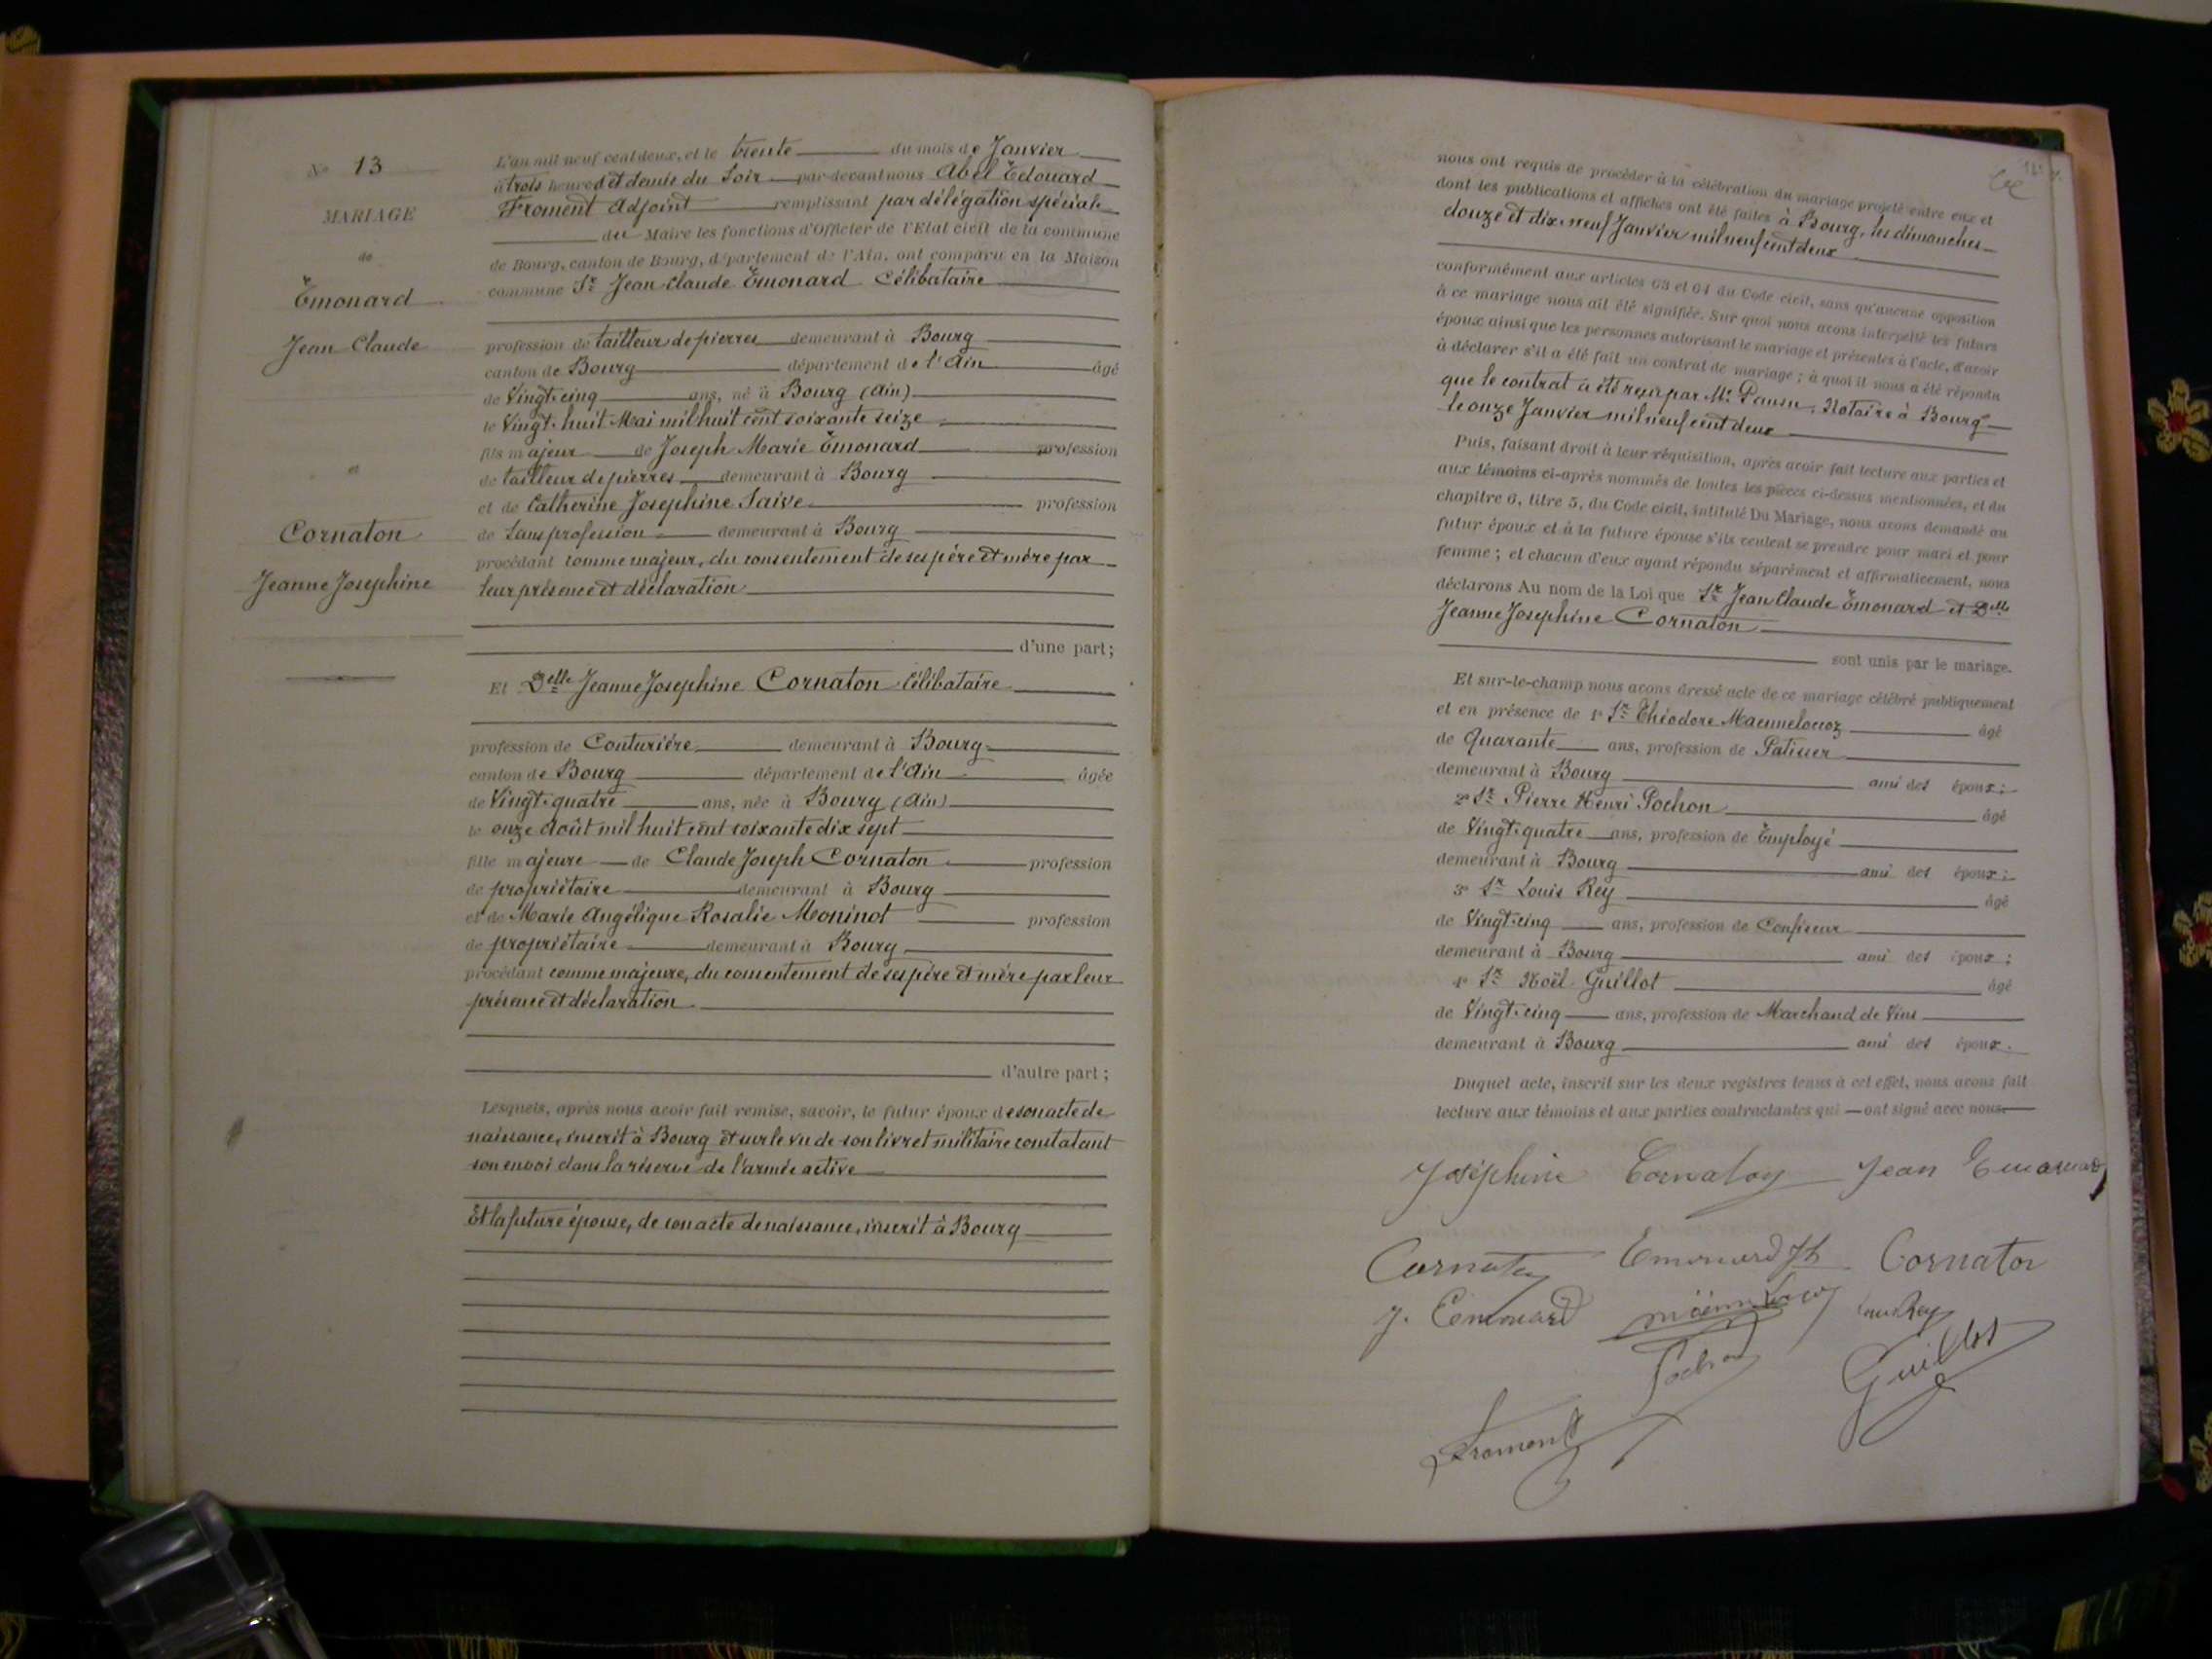 No 13
MARIAGE
de
Émonard
Jean Claude
et
Cornaton
Jeanne Josephine
L'an mil neuf cent deux, et le trente du mois de Janvier
à trois heures et demie du Soir par-devant nous Abel Edouard
Froment Adjoint remplissant par délégation spéciale
du Maire les fonctions d'Officier de l'Etat civil de la commune
de Bourg, canton de Bourg, département de l'Ain, ont comparu en la Maison
commune Sr Jean Claude Émonard Célibataire
profession de tailleur de pierres demeurant à Bourg
canton de Bourg département de l'Ain âgé
de Vingt-cinq ans, né à Bourg (Ain)
le Vingt-huit Mai mil huit cent soixante seize
fils majeur de Joseph Marie Émonard profession
de tailleur de pierres demeurant à Bourg
et de Catherine Josephine Saive profession
de Sans profession demeurant à Bourg
procédant comme majeur, du consentement de ses père et mère par
leur présence et déclaration
d'une part;
Et Delle Jeanne Josephine Cornaton Célibataire
profession de Couturière demeurant à Bourg
canton de Bourg département de l'Ain âgée
de Vingt-quatre ans, née à Bourg (Ain)
le onze Août mil huit cent soixante dix sept
fille majeure de Claude Joseph Cornaton profession
de propriétaire demeurant à Bourg
et de Marie Angélique Rosalie Moninot profession
de propriétaire demeurant à Bourg
procédant comme majeure, du consentement de ses père et mère par leur
présence et déclaration
d'autre part;
Lesquels, après nous avoir fait remise, savoir, le futur époux de son acte de
naissance, inscrit à Bourg et sur le vu de son livret militaire constatant
son envoi dans la réserve de l'armée active
Et la future épouse, de son acte de naissance, inscrit à Bourg
nous ont requis de procéder à la célébration du mariage projeté entre eux et
dont les publications et affiches ont été faites à Bourg, les dimanches
douze et dix-neuf Janvier mil neuf cent deux
conformément aux articles 63 et 64 du Code civil, sans qu'aucune opposition
à ce mariage nous ait été signifiée. Sur quoi nous avons interpellé les futurs
époux ainsi que les personnes autorisant le mariage et présentes à l'acte, d'avoir
à déclarer s'il a été fait un contrat de mariage; à quoi il nous a été répondu
que le contrat a été reçu par Me Notaire à Bourg
le onze Janvier mil neuf cent deux
Puis, faisant droit à leur réquisition, après avoir fait lecture aux parties et
aux témoins ci-après nommés de toutes les pièces ci-dessus mentionnées, et du
chapitre 6, titre 5, du Code civil, intitulé Du Mariage, nous avons demandé au
futur époux et à la future épouse s'ils veulent se prendre pour mari et pour
femme; et chacun d'eux ayant répondu séparément et affirmativement, nous
déclarons Au nom de la Loi que Sr Jean Claude Émonard et Delle
Jeanne Josephine Cornaton
sont unis par le mariage.
Et sur-le-champ nous avons dressé acte de ce mariage célébré publiquement
et en présence de 1° Sr Théodore âgé
de Quarante ans, profession de Patissier
demeurant à Bourg ami des époux;
2° Sr Pierre Henri Pochon âgé
de Vingt-quatre ans, profession de Employé
demeurant à Bourg ami des époux;
3° Sr Louis Rey âgé
de Vingt-cinq ans, profession de Confiseur
demeurant à Bourg ami des époux;
4° Sr Noël Guillot âgé
de Vingt-cinq ans, profession de Marchand de Vins
demeurant à Bourg ami des époux.
Duquel acte, inscrit sur les deux registres tenus à cet effet, nous avons fait
lecture aux témoins et aux parties contractantes qui ont signé avec nous
Joséphine Cornaton Jean Emonard
Cornaton Emonard Jh Cornaton
J. Emonard Louis Rey
Pochon Guillot
Froment